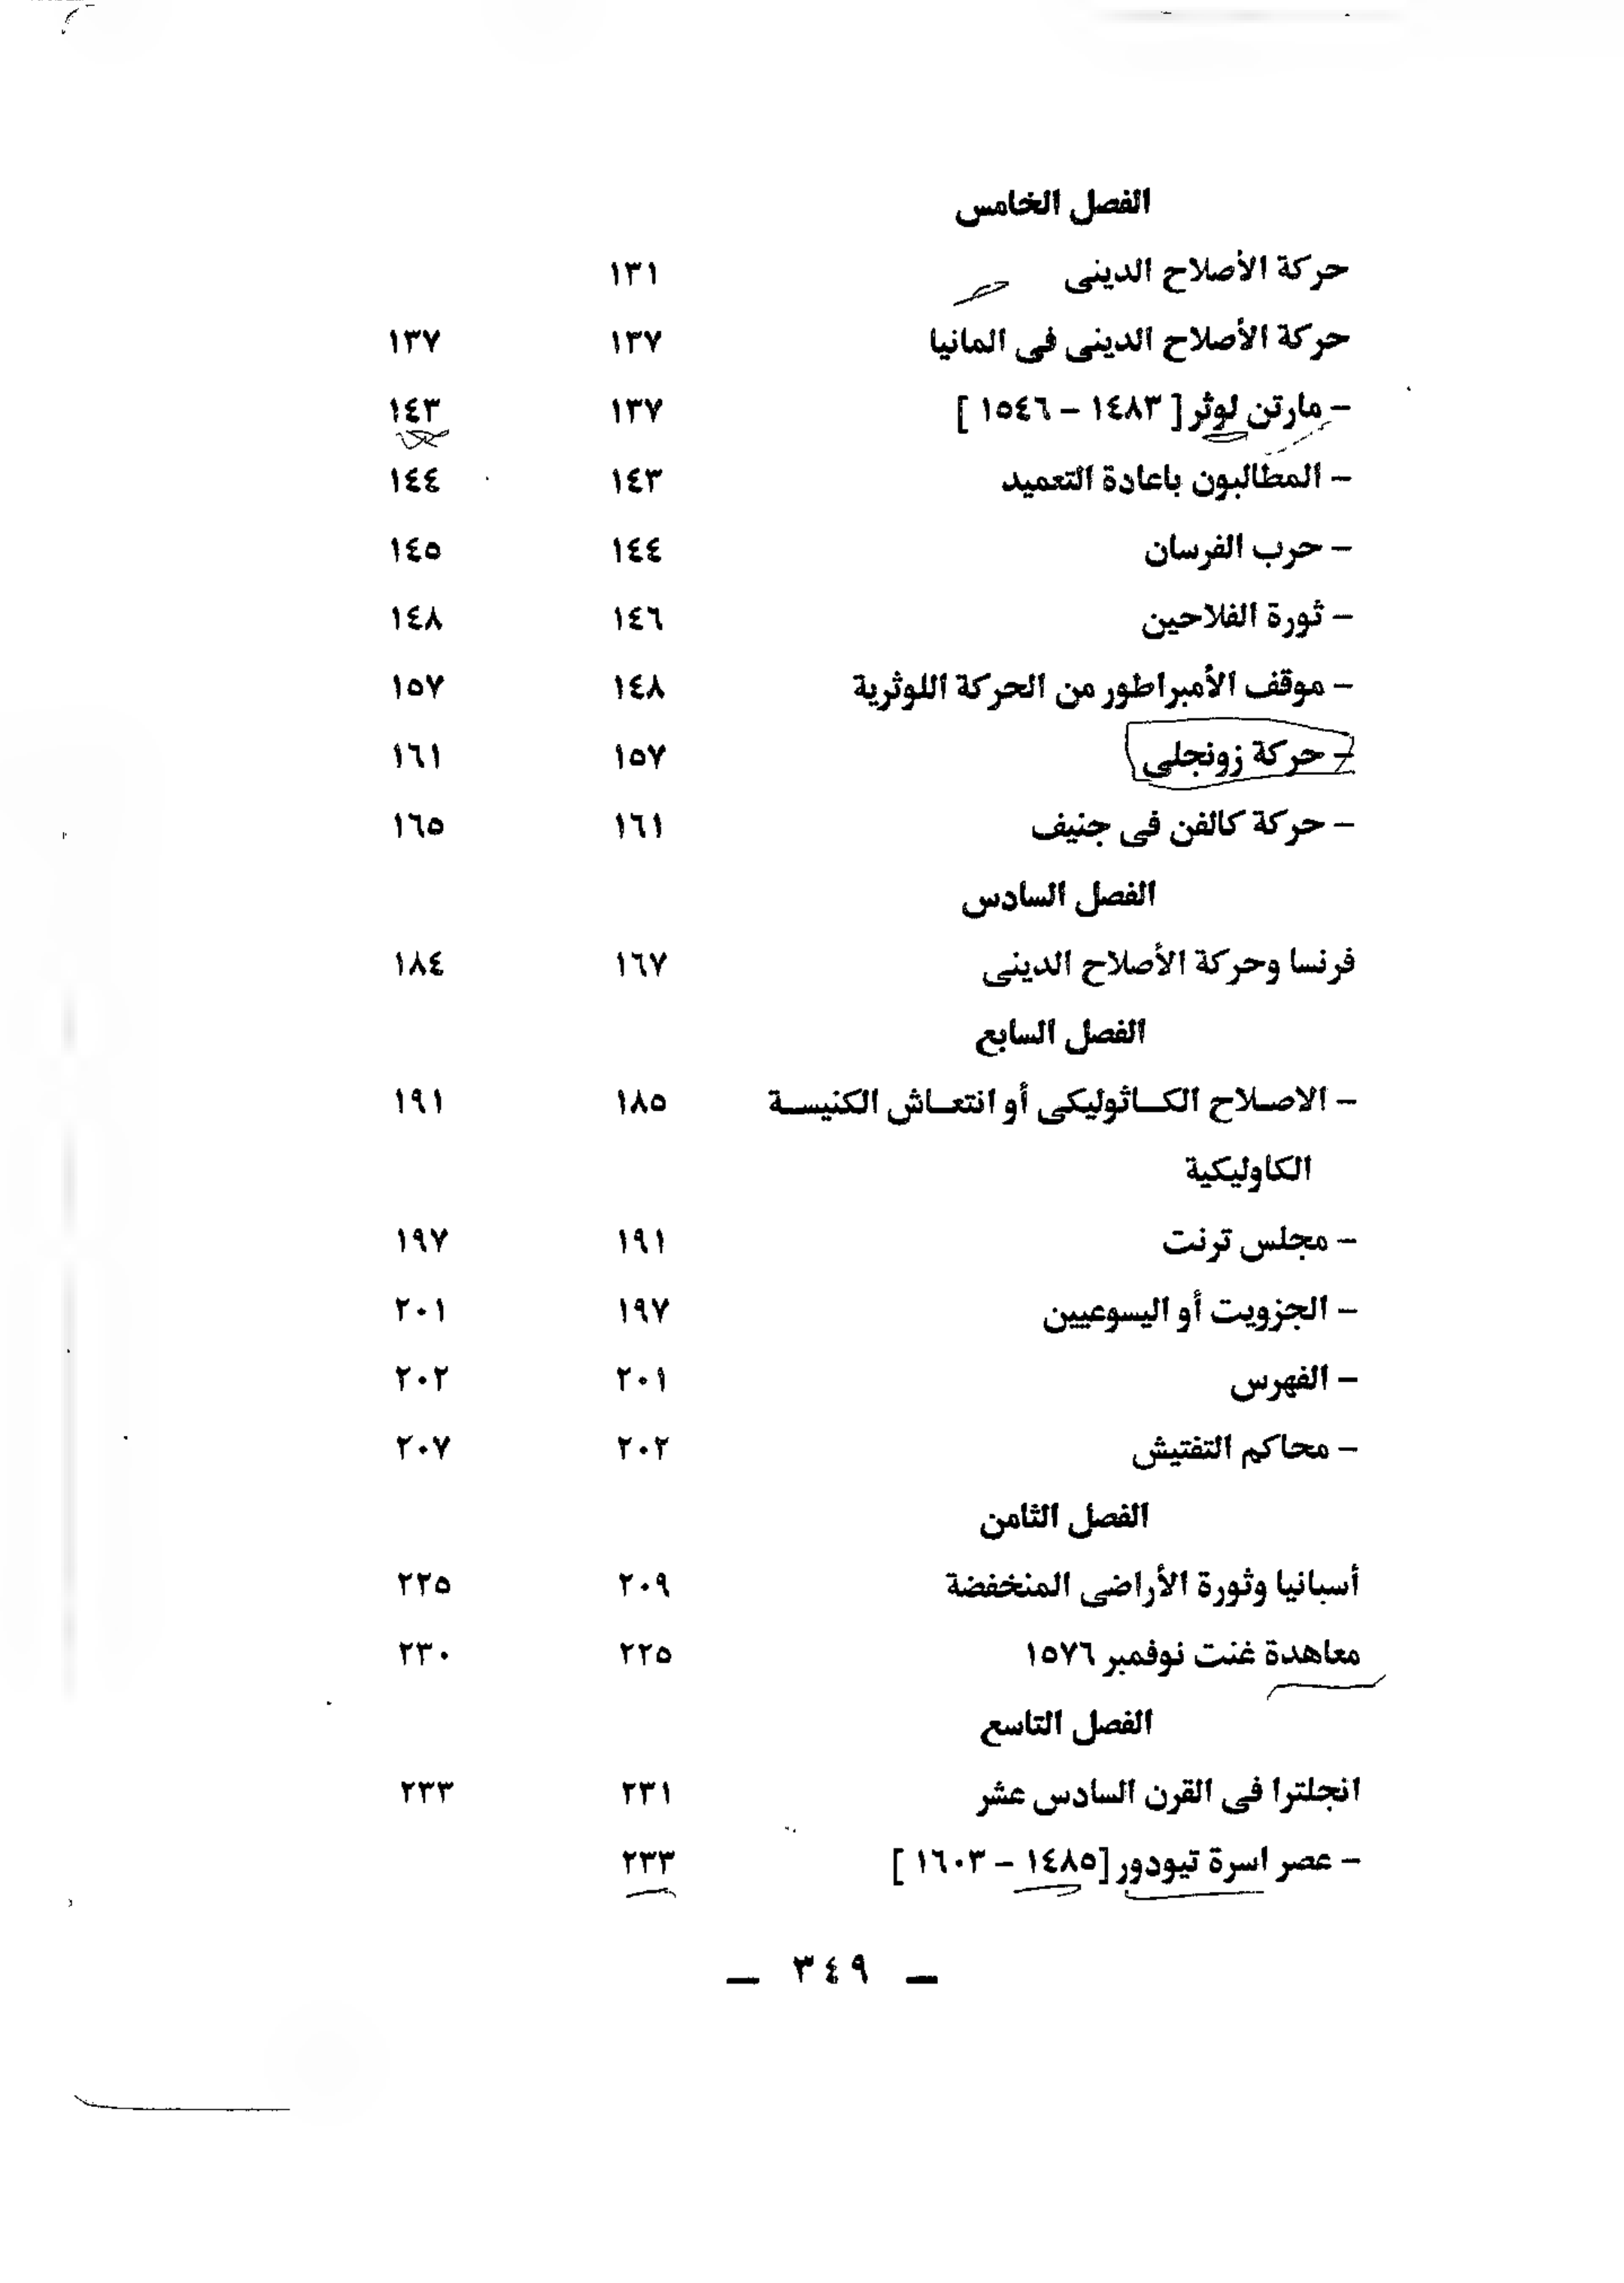 الفصل الخامس
حركة الأصلاح الدينى ١٣١
حركة الأصلاح الدينى فى المانيا ١٣٧ ١٣٧
– مارتن لوثر [ ١٤٨٣ – ١٥٤٦ ] ١٣٧ ١٤٣
– المطالبون باعادة التعميد ١٤٣ ١٤٤
– حرب الفرسان ١٤٤ ١٤٥
– ثورة الفلاحين ١٤٦ ١٤٨
– موقف الأمبراطور من الحركة اللوثرية ١٤٨ ١٥٧
– حركة زونجلى ١٥٧ ١٦١
– حركة كالفن فى جنيف ١٦١ ١٦٥
الفصل السادس
فرنسا وحركة الأصلاح الدينى ١٦٧ ١٨٤
الفصل السابع
– الاصلاح الكاثوليكى أو انتعاش الكنيسة ١٨٥ ١٩١
الكاوليكية
– مجلس ترنت ١٩١ ١٩٧
– الجزويت أو اليسوعيين ١٩٧ ٢٠١
– الفهرس ٢٠١ ٢٠٢
– محاكم التفتيش ٢٠٢ ٢٠٧
الفصل الثامن
أسبانيا وثورة الأراضى المنخفضة ٢٠٩ ٢٢٥
معاهدة غنت نوفمبر ١٥٧٦ ٢٢٥ ٢٣٠
الفصل التاسع
انجلترا فى القرن السادس عشر ٢٣١ ٢٣٣
– عصر اسرة تيودور [١٤٨٥ – ١٦٠٣ ] ٢٣٣
— ٣٤٩ —